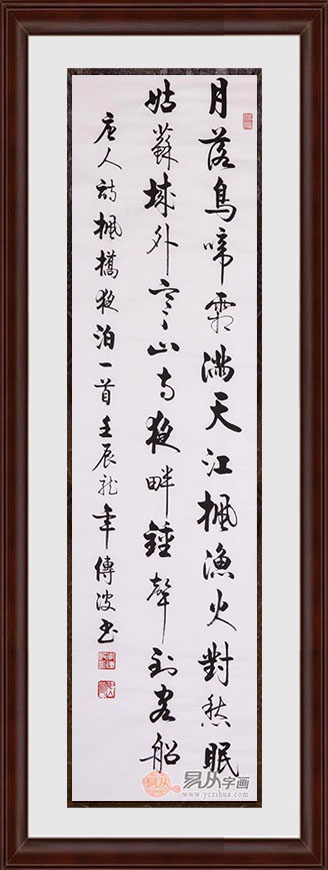 月落烏啼霜滿天江楓漁火對愁眠
姑蘇城外寒山寺夜畔鍾聲到客船
唐人詩楓橋夜泊一首壬辰龍年傳波书
易从字画
www.yczihua.com